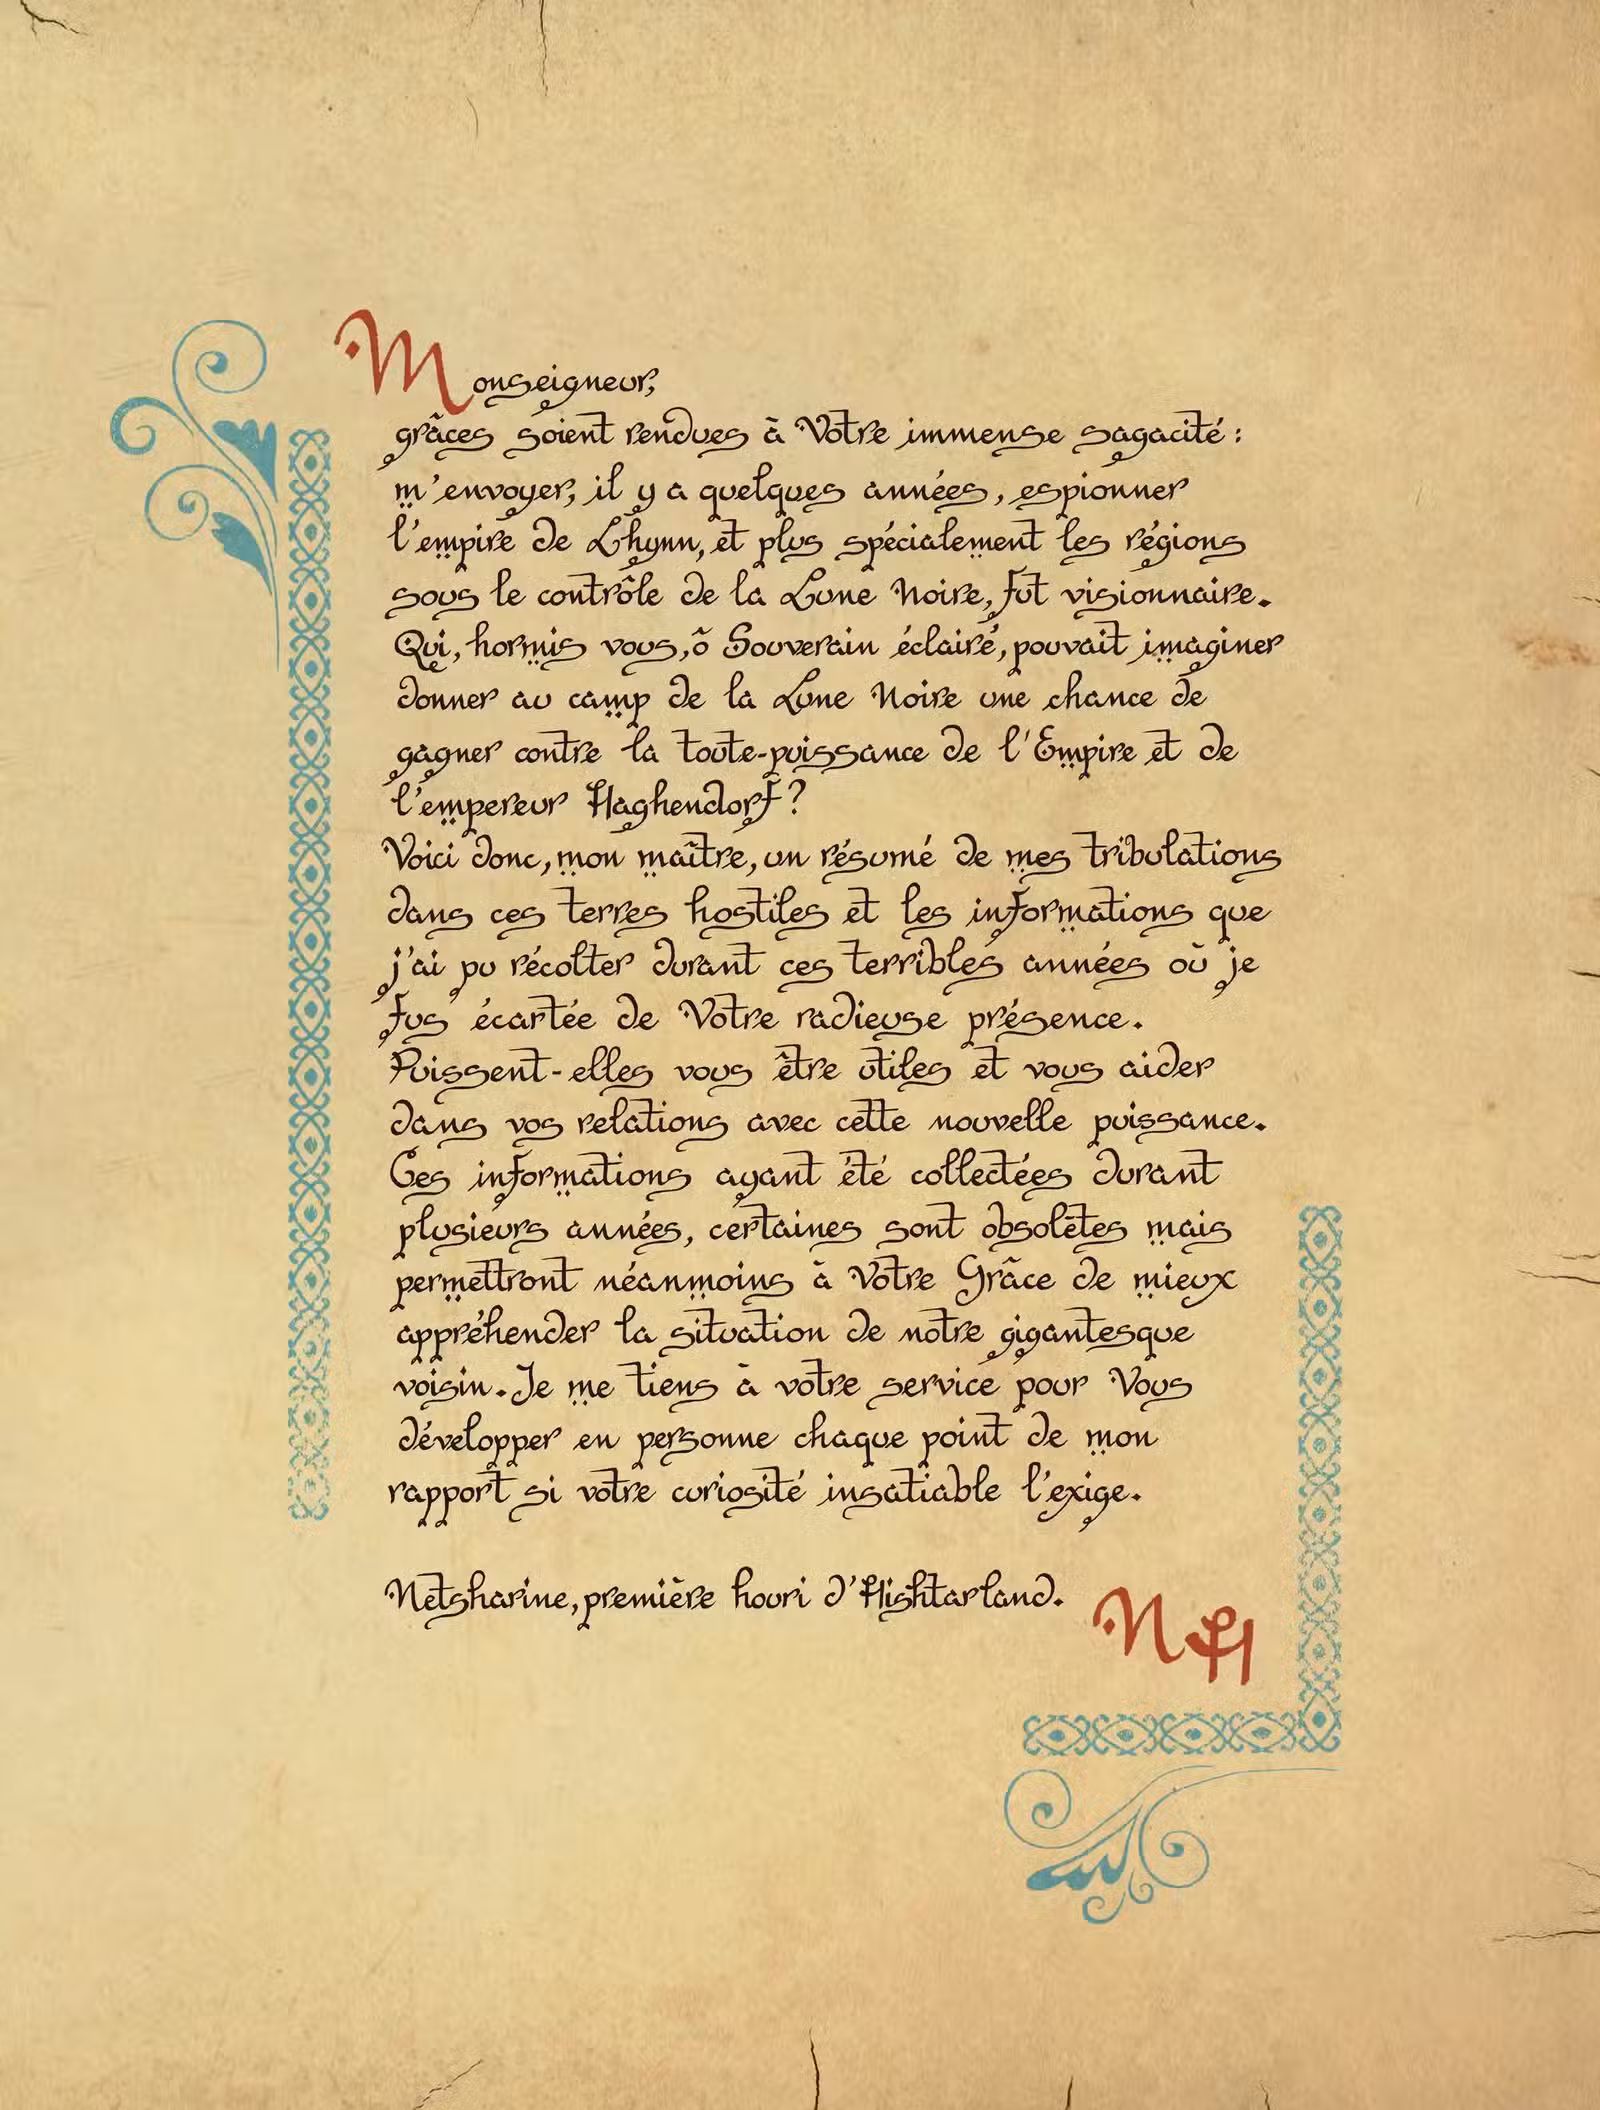 Monseigneur,
grâces soient rendues à Votre immense sagacité :
m'envoyer, il y a quelques années, espionner
l'empire de Lhynn, et plus spécialement les régions
sous le contrôle de la Lune Noire, fut visionnaire.
Qui, hormis vous, ô Souverain éclairé, pouvait imaginer
donner au camp de la Lune Noire une chance de
gagner contre la toute-puissance de l'Empire et de
l'empereur Haghendorf ?
Voici donc, mon maître, un résumé de mes tribulations
dans ces terres hostiles et les informations que
j'ai pu récolter durant ces terribles années où je
fus écartée de Votre radieuse présence.
Puissent-elles vous être utiles et vous aider
dans vos relations avec cette nouvelle puissance.
Ces informations ayant été collectées durant
plusieurs années, certaines sont obsolètes mais
permettront néanmoins à Votre Grâce de mieux
appréhender la situation de notre gigantesque
voisin. Je me tiens à votre service pour Vous
développer en personne chaque point de mon
rapport si votre curiosité insatiable l'exige.
Netsharine, première houri d'Hishtarland.
NH